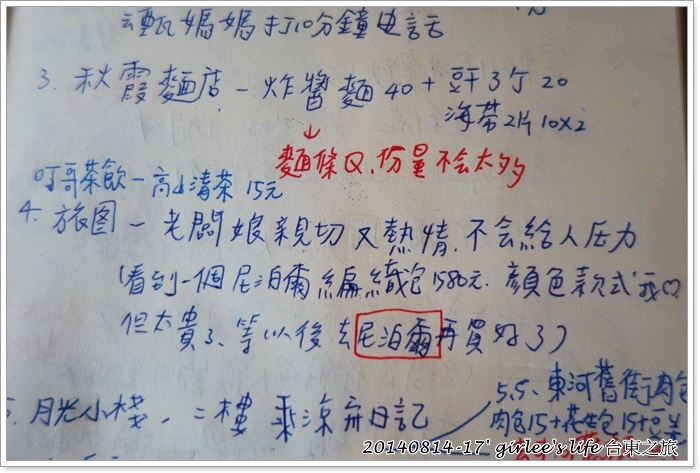 甄媽媽打10分鐘电話
3. 秋霞麵店－炸醬麵 40 + 豆干3ㄎ 20
海帶2片 10x2
↓
麵條Q,份量不会太多
叮哥茶飲－高山清茶 15元
4. 旅图－老闆娘親切又熱情.不会給人压力
(看到一個尼泊爾編織包1580元.顏色款式我♡
但太貴了、等以後去尼泊爾再買好了)
5.5、東河舊街肉包
肉包15+花生包15+豆
月光小棧.二樓乘涼.弁日記
20140814-17' girlee's life 台東之旅